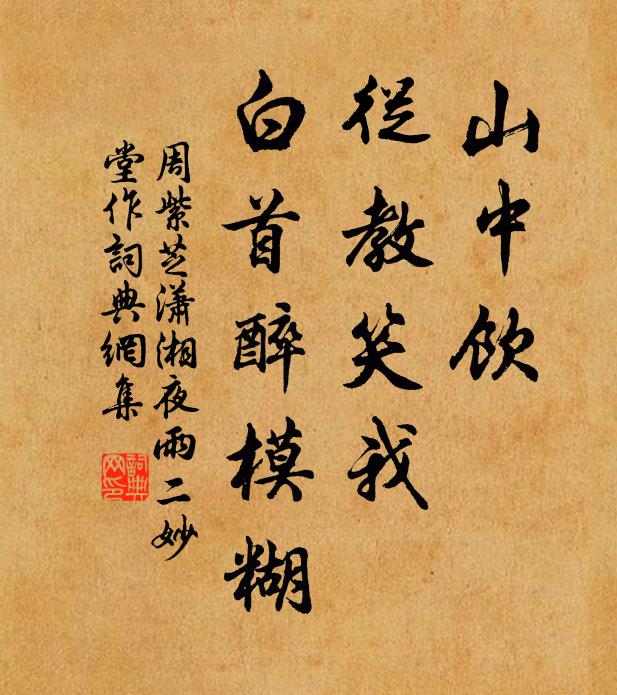 山中飲
從教笑我
白首醉模糊
周紫芝瀟湘夜雨二妙
堂作詞典網集
詞典
网印